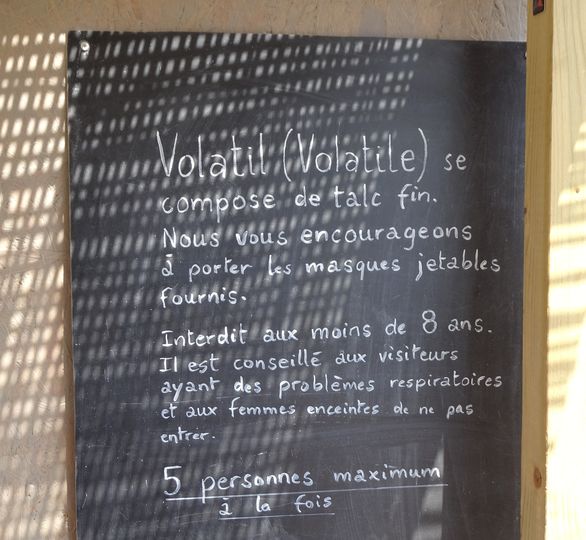 Volatil (Volatile) se
compose de talc fin.
Nous vous encourageons
à porter les masques jetables
fournis.
Interdit aux moins de 8 ans.
Il est conseillé aux visiteurs
ayant des problèmes respiratoires
et aux femmes enceintes de ne pas
entrer.
5 personnes maximum
à la fois